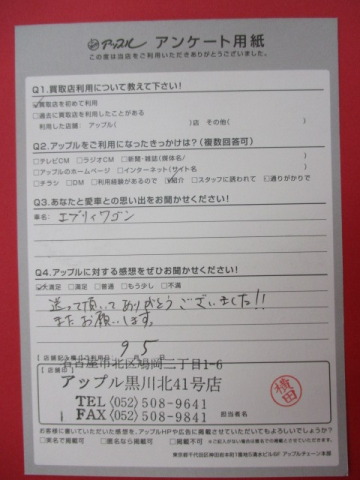 アップル アンケート用紙
この度は当店をご利用いただきありがとうございました。
Q1.買取店利用について教えて下さい!
買取店を初めて利用
□過去に買取店を利用したことがある
利用した店舗: アップル( )店 その他( )
Q2.アップルをご利用になったきっかけは?(複数回答可)
□テレビCM □ラジオCM □新聞・雑誌(媒体名/ )
□アップルのホームページ □インターネット(サイト名 )
□チラシ □DM □利用経験があるので 紹介 □スタッフに誘われて □通りがかりで
Q3.あなたと愛車との思い出をお聞かせください!
車名: エブリィワゴン
Q4.アップルに対する感想をぜひお聞かせください!
大満足 □満足 □普通 □もう少し □不満
送って頂いてありがとうございました!!
またお願いします。
9 5
名古屋市北区鳩岡二丁目1-6
【店舗印】
アップル黒川北41号店
TEL (052) 508-9641
FAX (052) 508-9841
担当者名
お客様に書いていただいた感想を、アップルHPや広告に掲載させていただいてもよろしいでしょうか?
□実名で掲載可 □匿名なら掲載可 □掲載不可
アップルチェーン本部